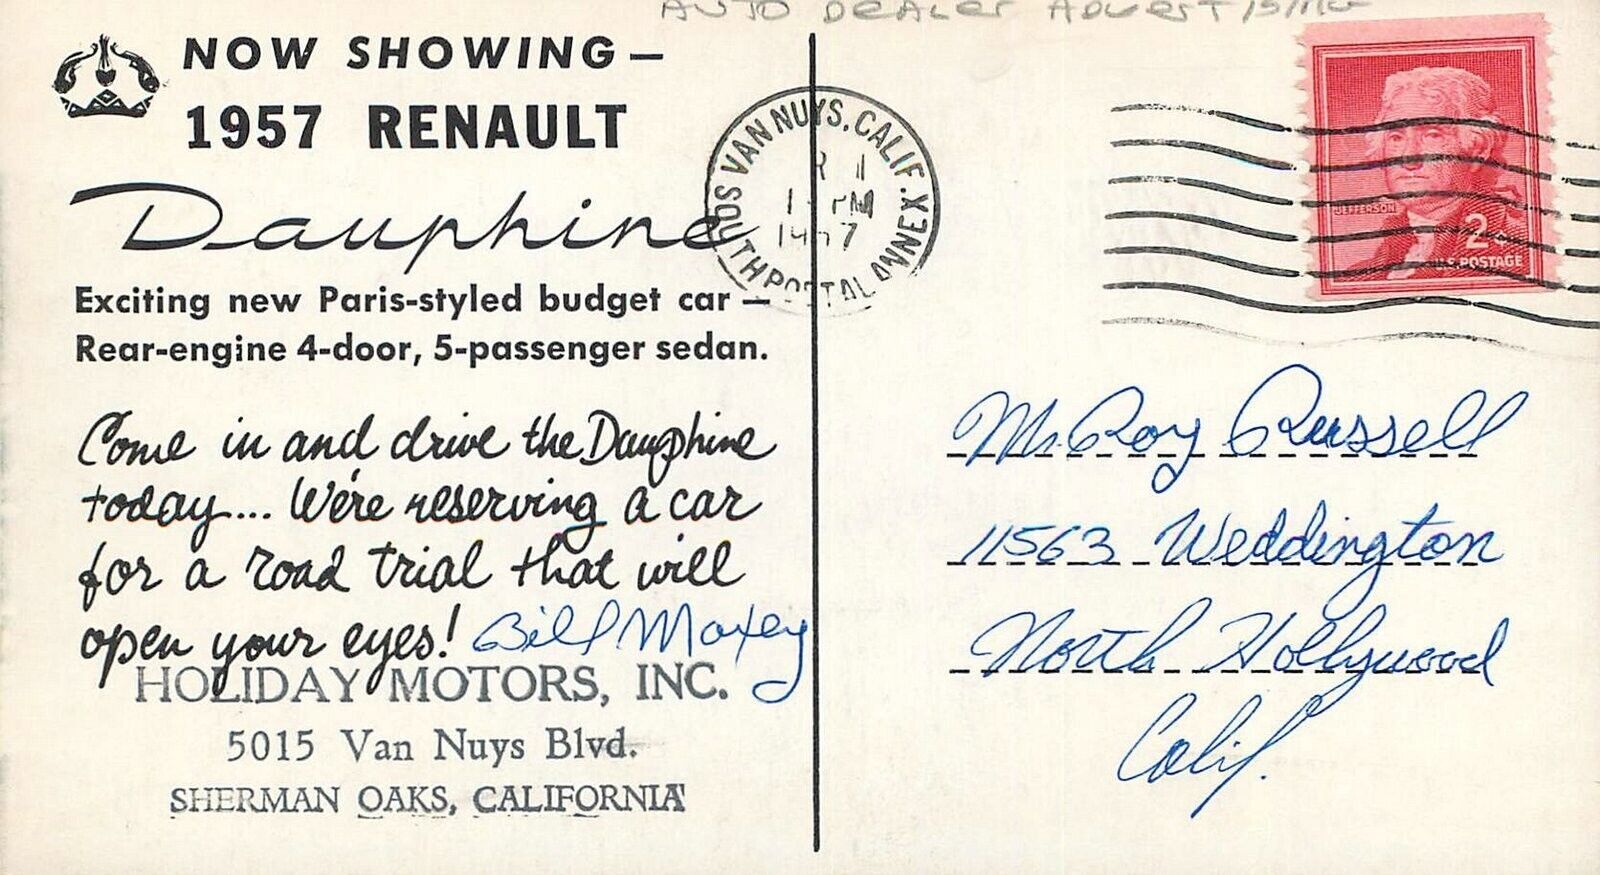 AUTO DEALER ADVERTISING
NOW SHOWING —
1957 RENAULT
Dauphine
Exciting new Paris-styled budget car —
Rear-engine 4-door, 5-passenger sedan.
Come in and drive the Dauphine
today... We're reserving a car
for a road trial that will
open your eyes! Bill Maxey
HOLIDAY MOTORS, INC.
5015 Van Nuys Blvd.
SHERMAN OAKS, CALIFORNIA
VAN NUYS, CALIF.
1 PM
1957
SOUTH POSTAL ANNEX
JEFFERSON
2¢
U.S. POSTAGE
Mr. Roy Russell
11563 Weddington
North Hollywood
Calif.